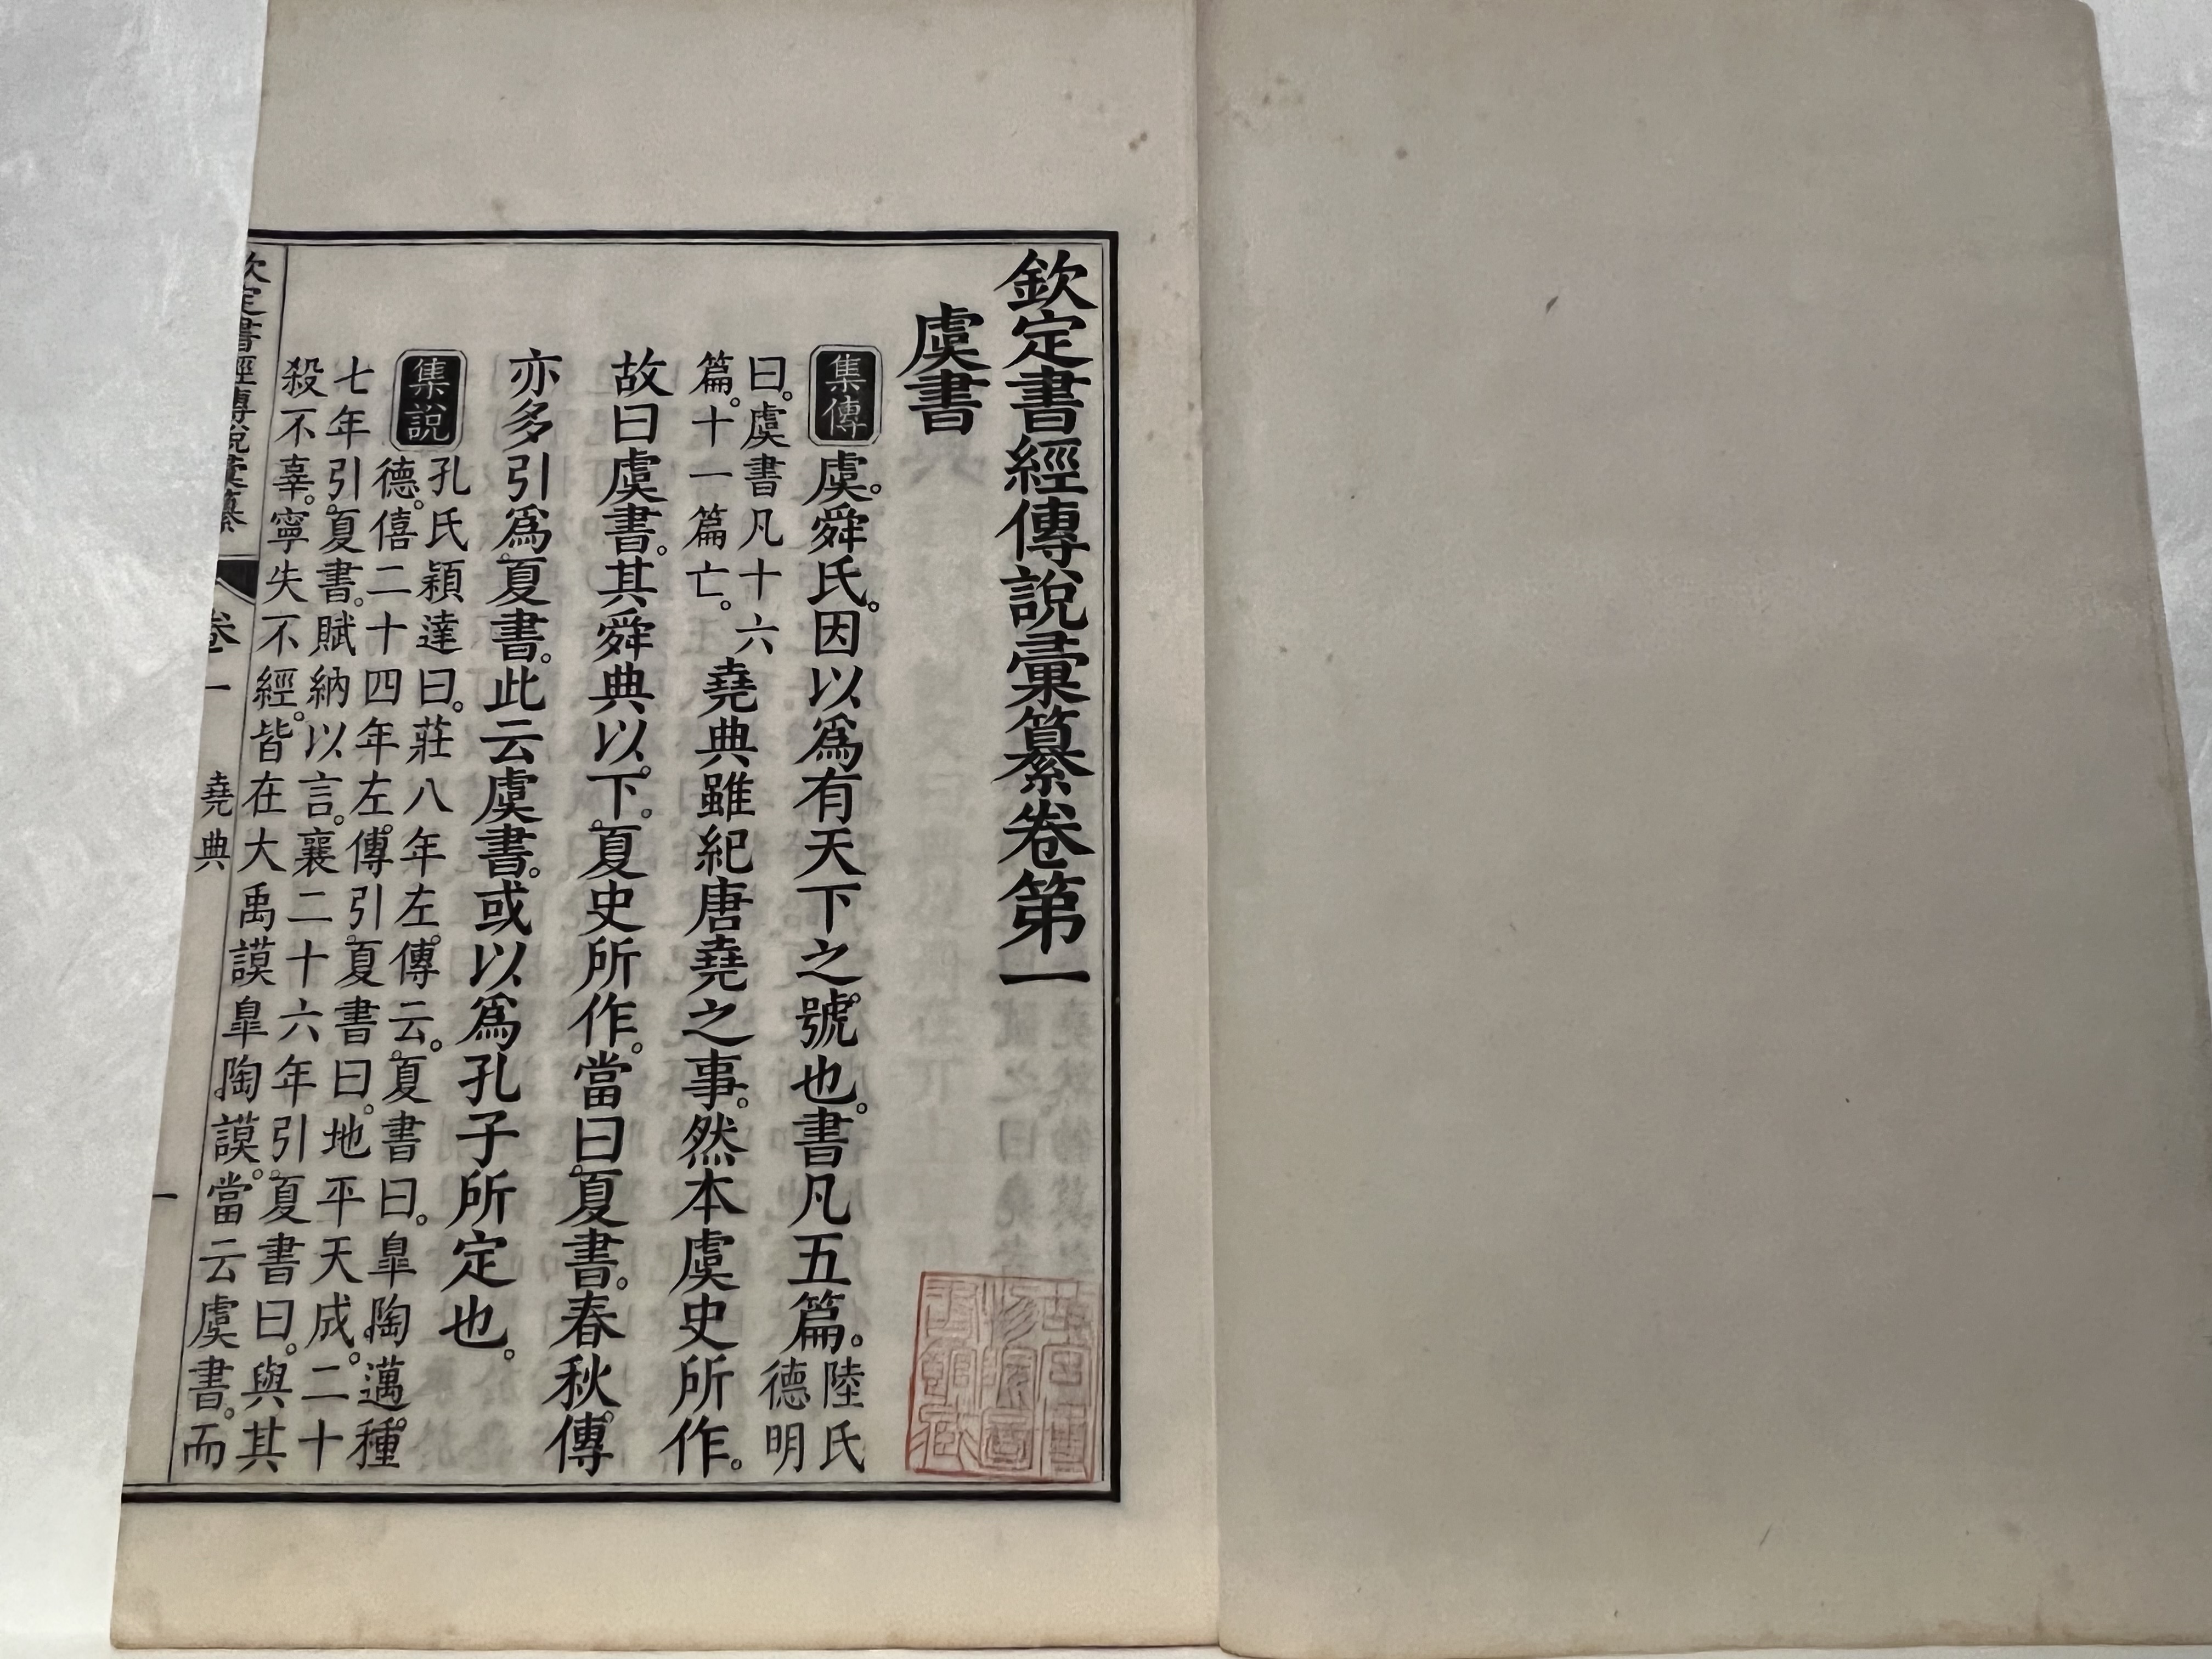 欽定書經傳說彙纂卷第一
虞書
集傳
虞。舜氏。因以爲有天下之號也。書凡五篇。陸氏
德明
曰。虞書凡十六
篇。十一篇亡。堯典雖紀唐堯之事。然本虞史所作。
故曰虞書。其舜典以下。夏史所作。當曰夏書。春秋傳
亦多引爲夏書。此云虞書。或以爲孔子所定也。
集說
孔氏穎達曰。莊八年左傳云。夏書曰。皐陶邁種
德。僖二十四年左傳引夏書曰。地平天成。二十
七年引夏書。賦納以言。襄二十六年引夏書曰。與其
殺不辜。寧失不經。皆在大禹謨皐陶謨。當云虞書。而
欽定書經傳說彙纂
卷一
堯典
一